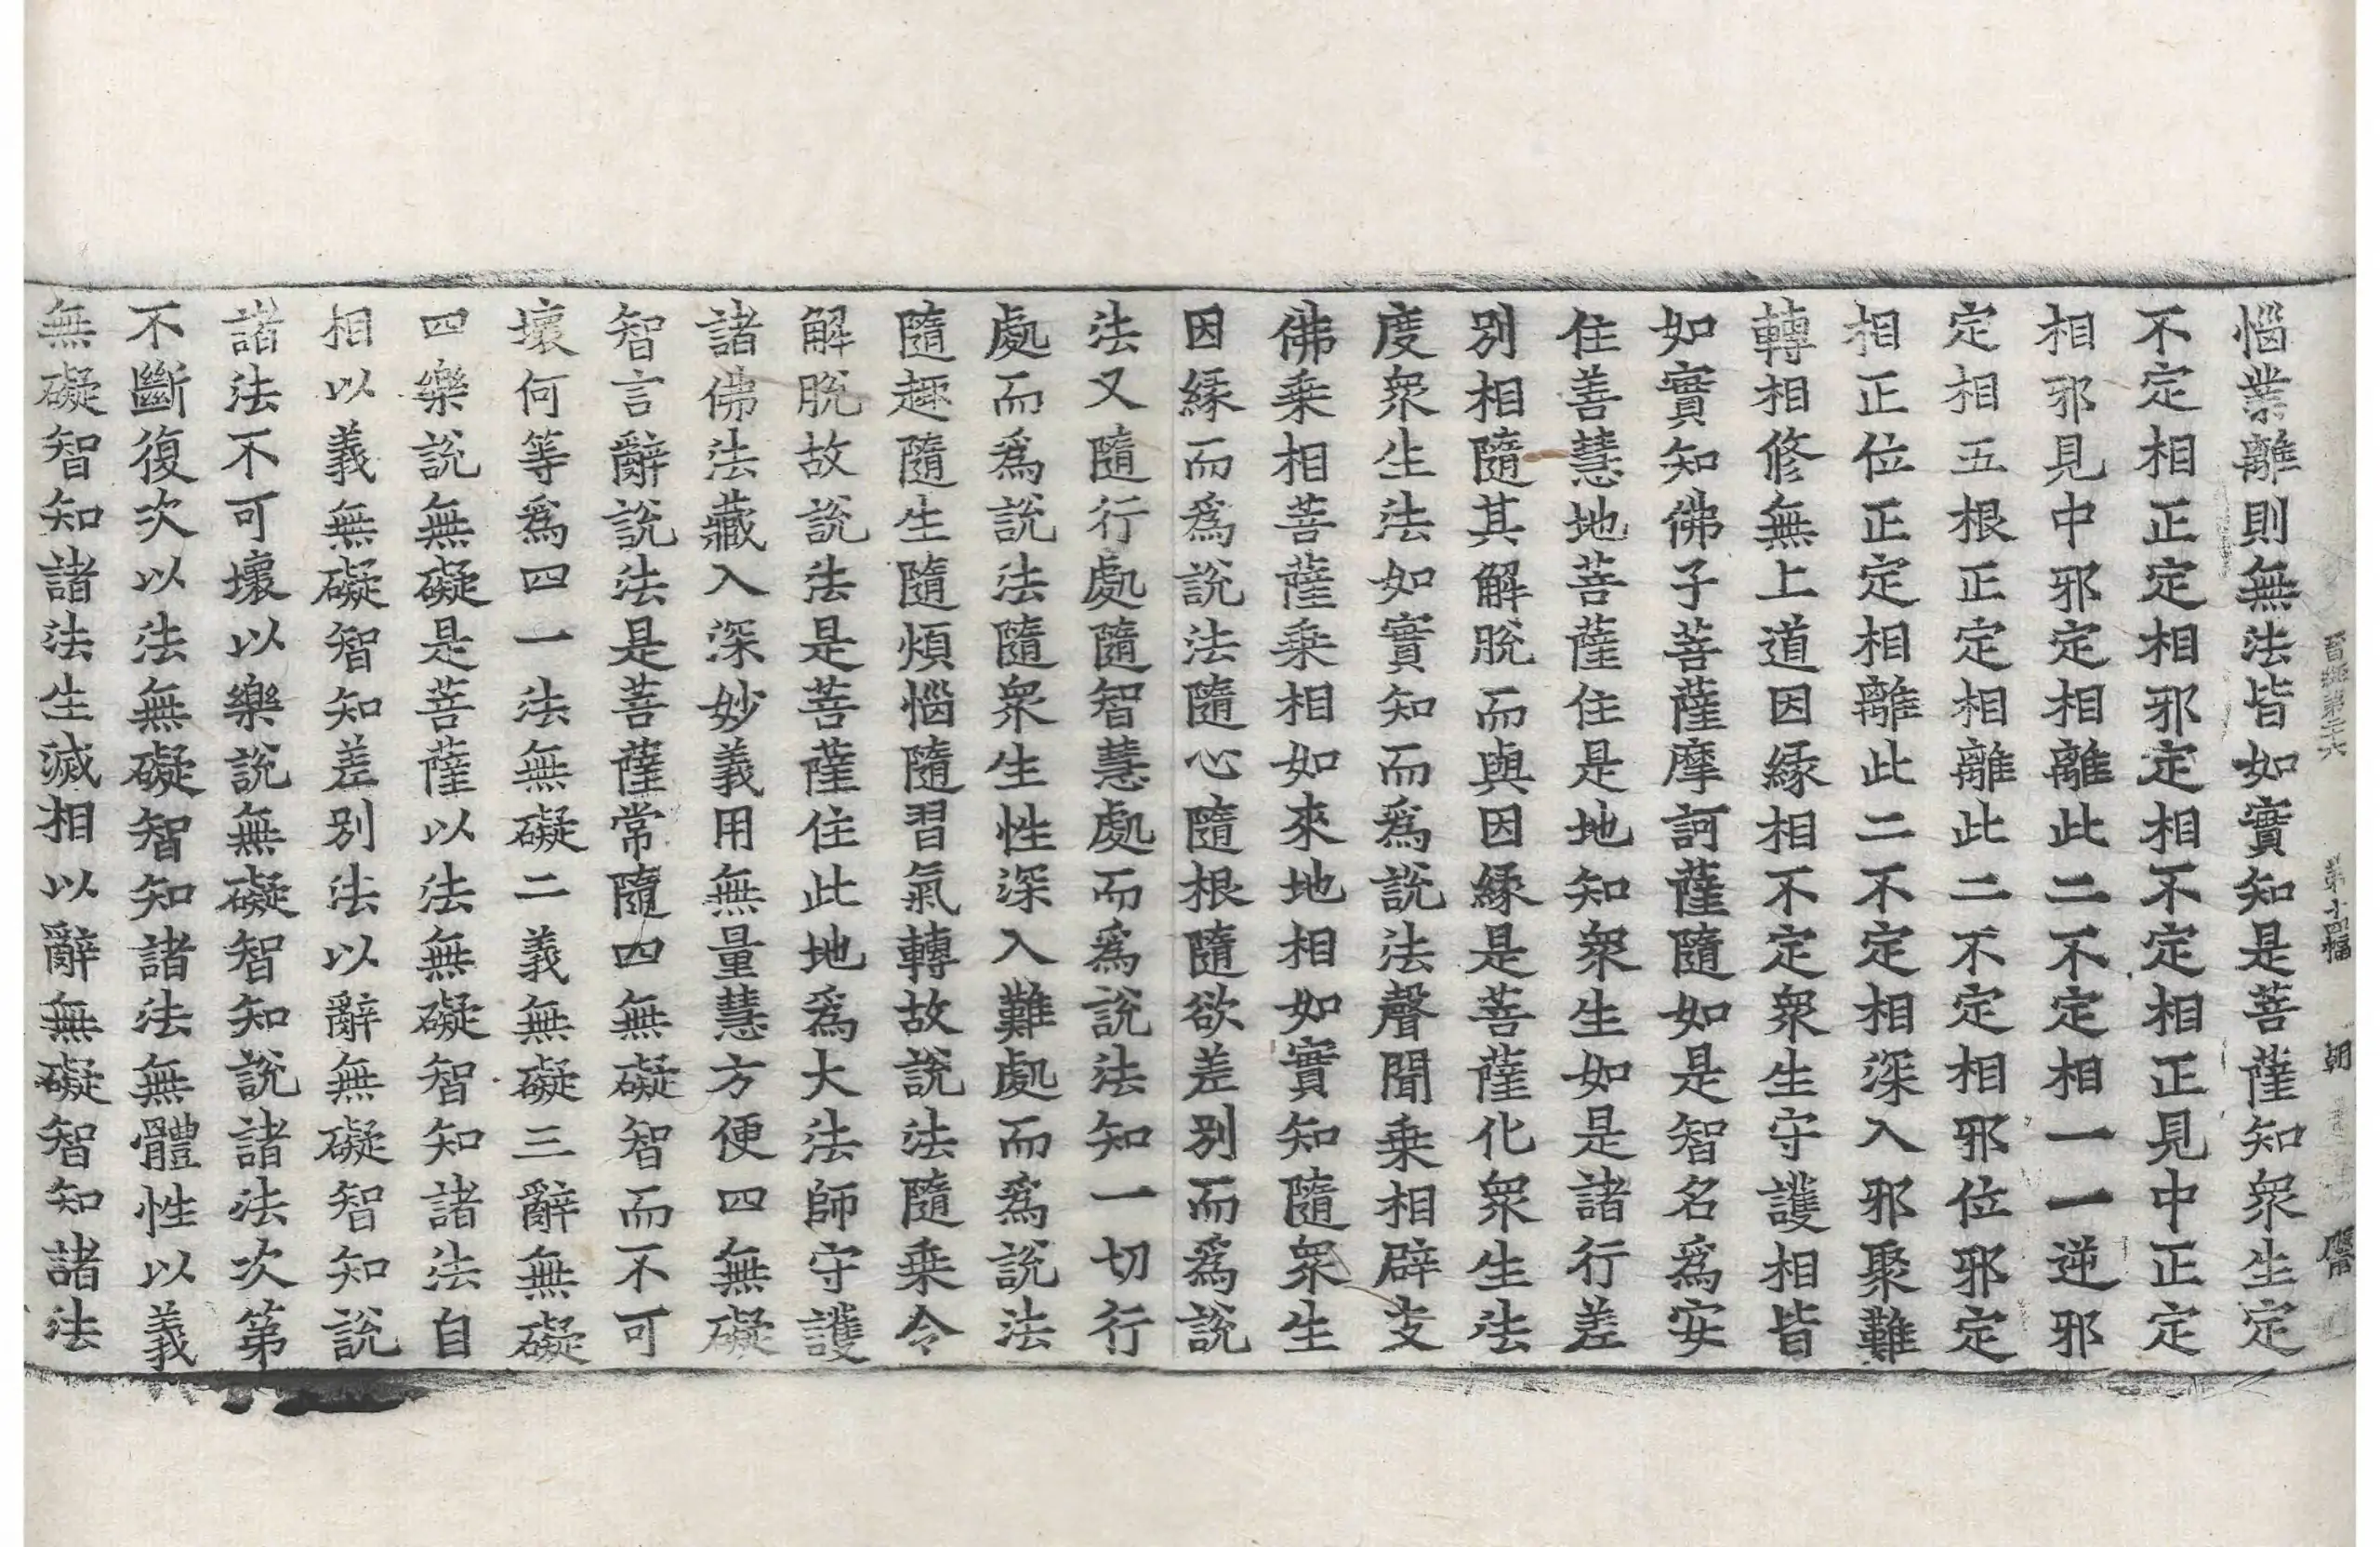 晋經第二十六 第十四幅 朝
惱業離則無法皆如實知是菩薩知衆生定
不定相正定相邪定相不定相正見中正定
相邪見中邪定相離此二不定相一一逆邪
定相五根正定相離此二不定相邪位邪定
相正位正定相離此二不定相深入邪聚難
轉相修無上道因緣相不定衆生守護相皆
如實知佛子菩薩摩訶薩隨如是智名爲安
住善慧地菩薩住是地知衆生如是諸行差
別相隨其解脫而與因緣是菩薩化衆生法
度衆生法如實知而爲說法聲聞乗相辟支
佛乗相菩薩乗相如來地相如實知隨衆生
因緣而爲說法隨心隨根隨欲差別而爲說
法又隨行處隨智慧處而爲說法知一切行
處而爲說法隨衆生性深入難處而爲說法
隨趣隨生隨煩惱隨習氣轉故說法隨乗令
解脫故說法是菩薩住此地爲大法師守護
諸佛法藏入深妙義用無量慧方便四無礙
智言辭說法是菩薩常隨四無礙智而不可
壞何等爲四一法無礙二義無礙三辭無礙
四樂說無礙是菩薩以法無礙智知諸法自
相以義無礙智知差別法以辭無礙智知說
諸法不可壞以樂說無礙智知說諸法次第
不斷復次以法無礙智知諸法無體性以義
無礙智知諸法生滅相以辭無礙智知諸法